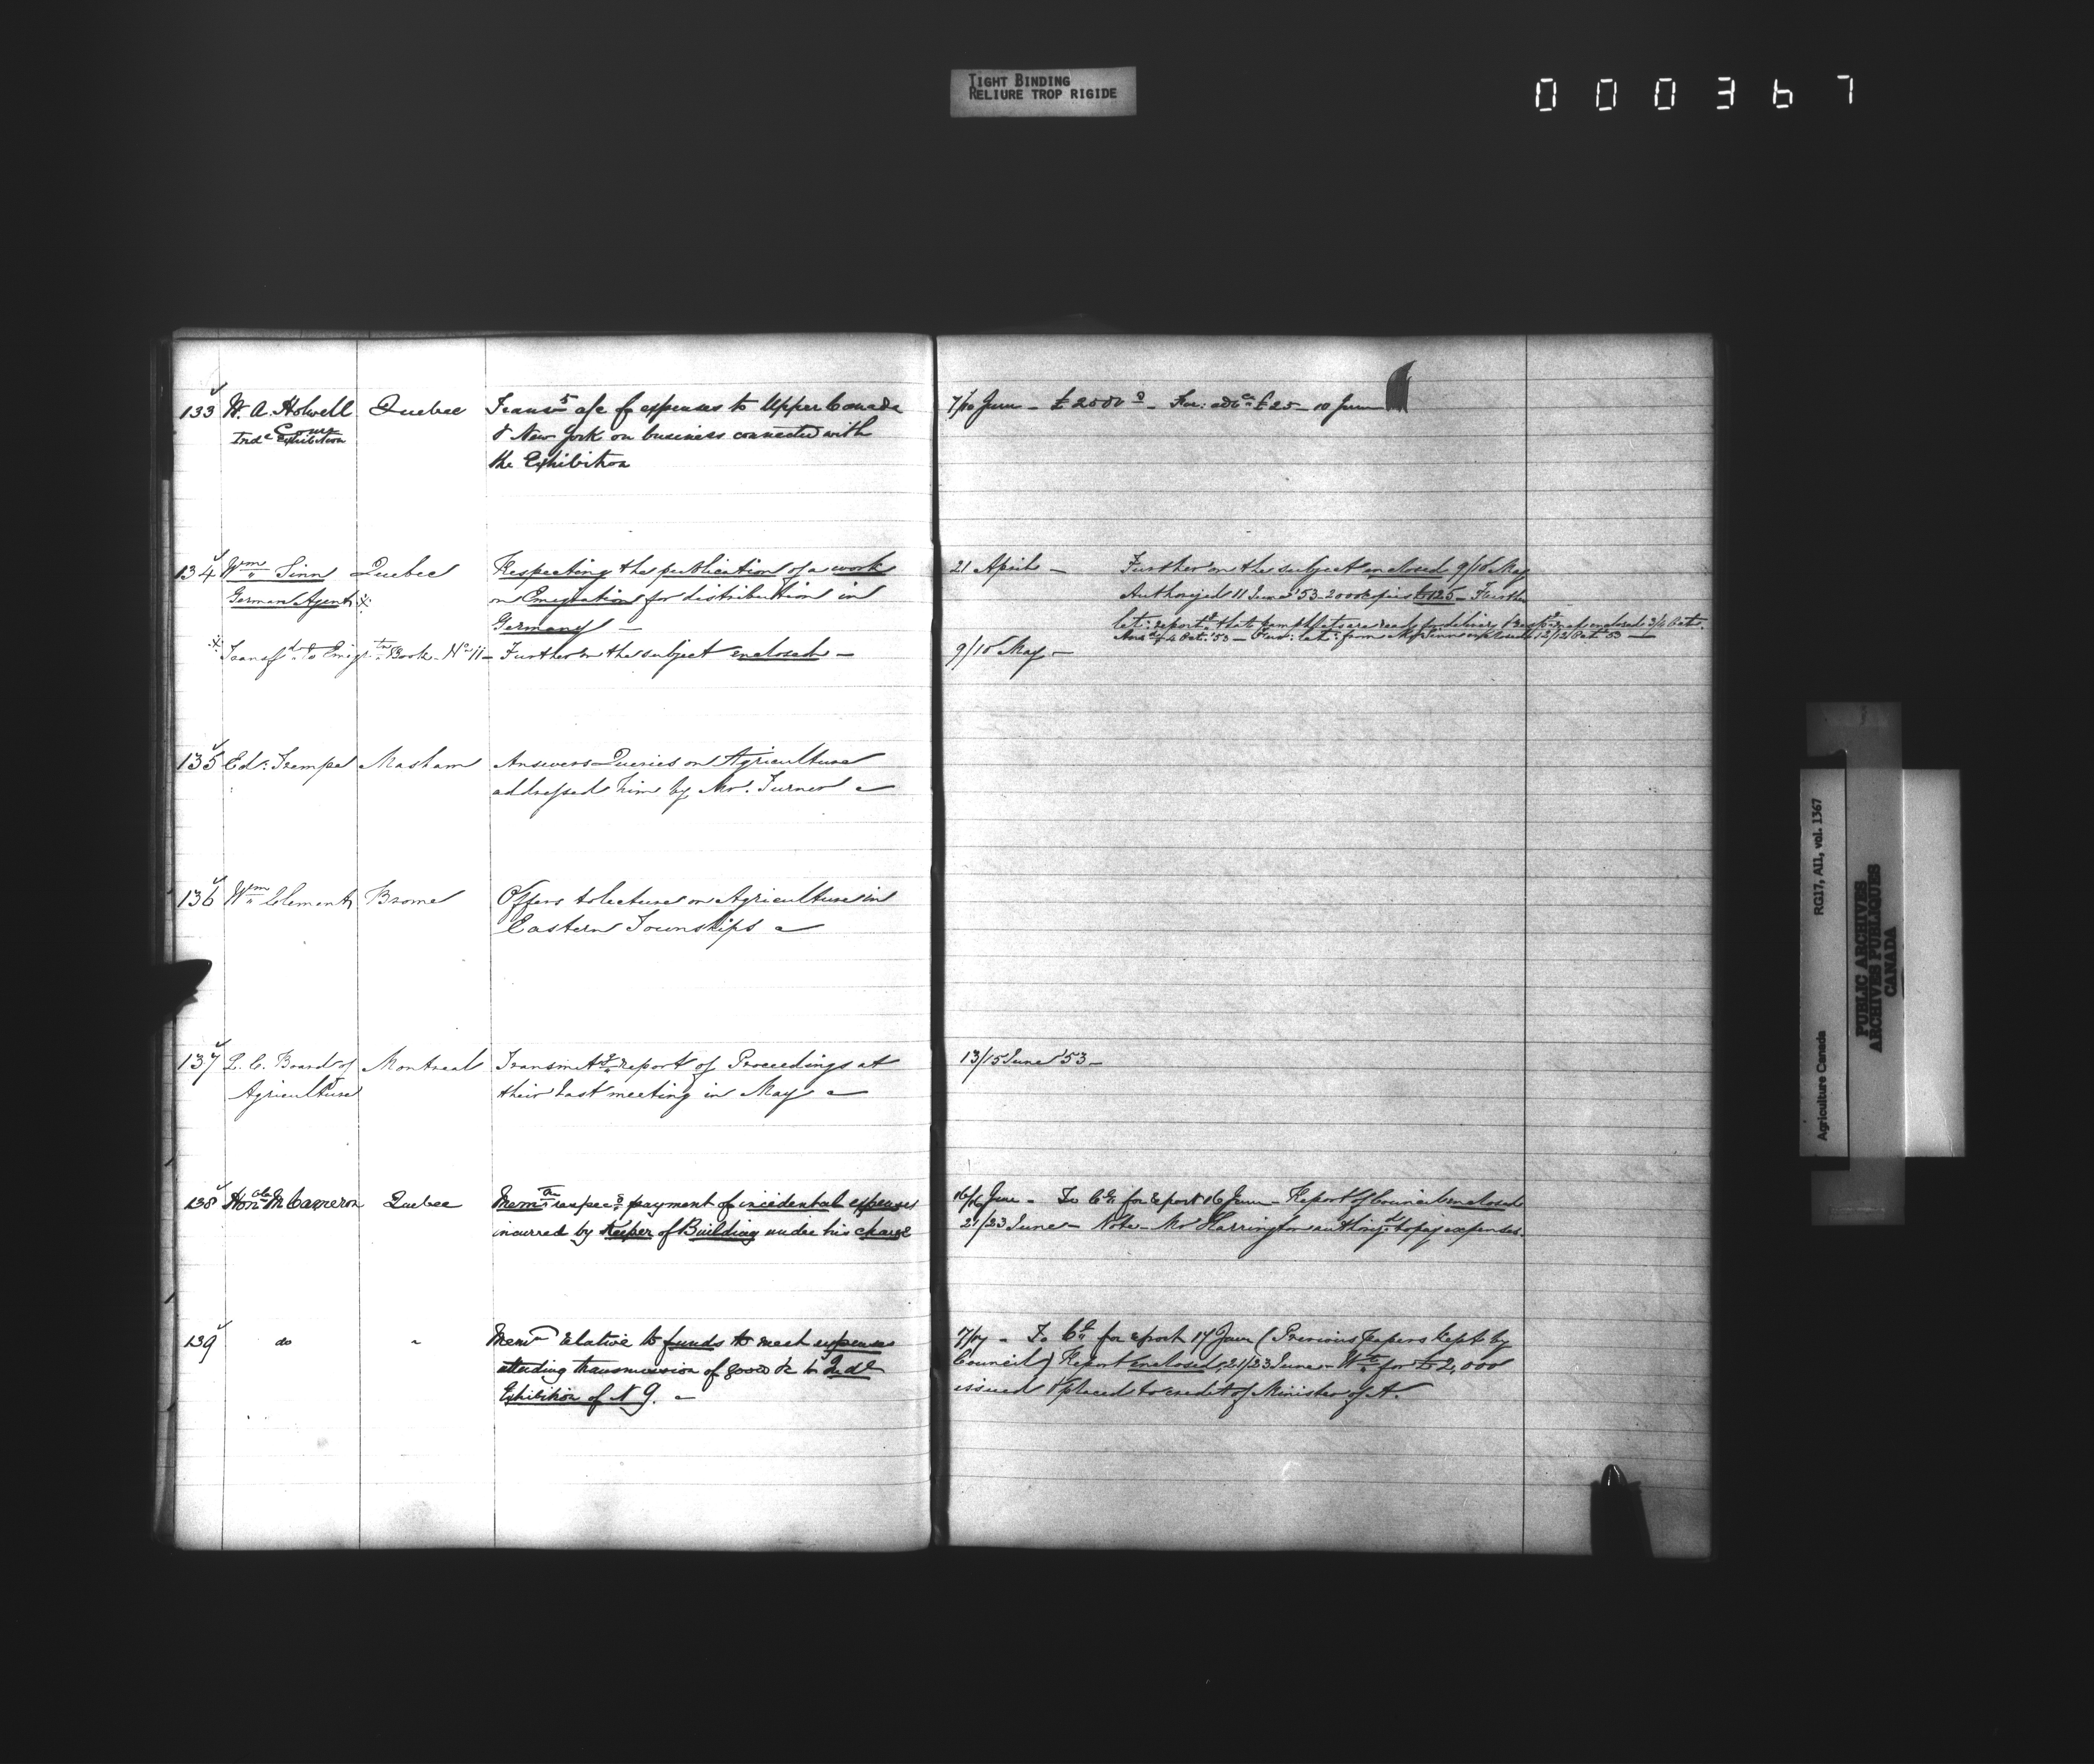 TIGHT BINDING
RELIURE TROP RIGIDE
000367
133 W. A. Holwell Quebec Transs a/c of expenses to Upper Canada
Indl Comr Exhibition
& New York on business connected with
the Exhibition
7/10 June - For: adva £25 - 10 June
134 Wm Sinn Quebec Respecting the publication of a work
German Agent on Emigration for distribution in
Germany -
Transfd to Emigrtn Book No 11 - Further on the subject enclosed -
21 April - Further on the subject enclosed 9/10 May
Authorized 11 June '53 - 2000 copies £125 - Further
9/10 May -
135 Ed: Trempe Masham Answers Queries on Agriculture
addressed him by Mr. Turner -
136 Wm Clement Brome Offers to lecture on Agriculture in
Eastern Townships -
137 L. C. Board of Montreal Transmitsg report of Proceedings at
Agriculture their last meeting in May -
13/15 June '53 -
138 Honble M Cameron Quebec payment of incidental expenses
incurred by Keeper of Building under his charge
16/16 June - To Cl for report 16 June - Report of Council enclosed
21/23 June - Note - Mr Harrington authorizd to pay expenses.
139 do " relative to funds to meet expenses
attending transmission of goods &c to Indl
Exhibition of N Y. -
17/17 - To Cl for report 17 June (Previous papers kept by
Council) Report enclosed, 21/23 June - Wt for £2,000
issued & placed to credit of Minister of A.
Agriculture Canada RG17, AII, vol. 1367
PUBLIC ARCHIVES
ARCHIVES PUBLIQUES
CANADA